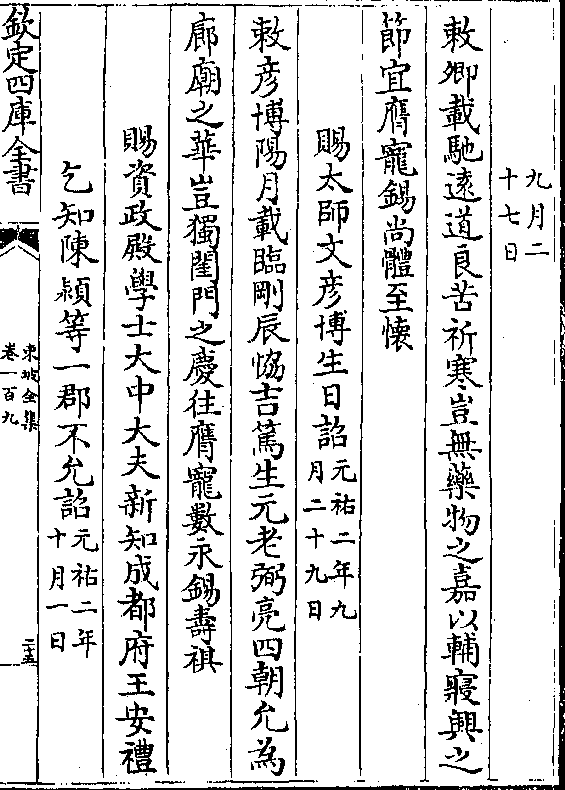 九月二
十七日
敕卿載馳遠道良苦祈寒豈無藥物之嘉以輔寢興之
節宜膺寵錫尚體至懷
賜太師文彦博生日詔元祐二年九
月二十九日
敕彦博陽月載臨剛辰恊吉篤生元老弼亮四朝允為
廊廟之華豈獨閨門之慶往膺寵數永錫壽祺
賜資政殿學士大中大夫新知成都府王安禮
乞知陳潁等一郡不允詔元祐二年
十月一日
欽定四庫全書
東坡全集
卷一百九
二十五